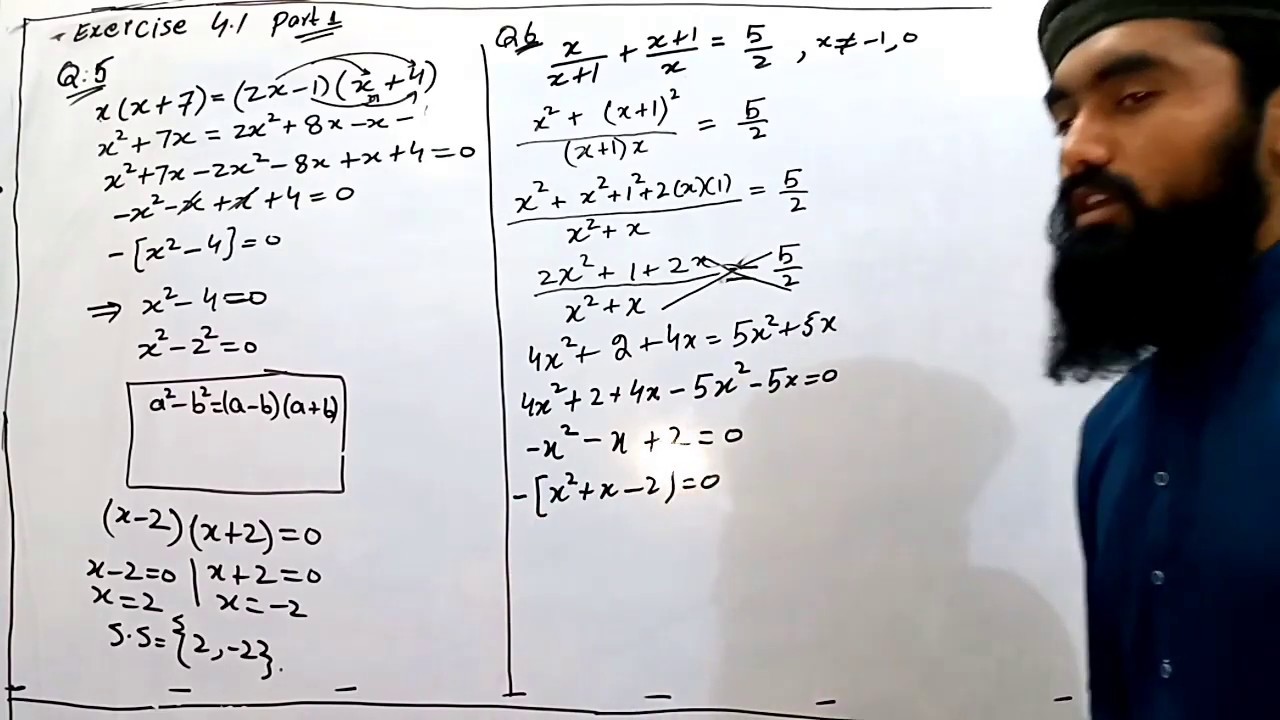 Exercise 4.1 Part 1
Q:5
x(x+7)=(2x-1)(x+4)
x²+7x=2x²+8x-x-
x²+7x-2x²-8x+x+4=0
-x²-x+x+4=0
-[x²-4]=0
⇒ x²-4=0
x²-2²=0
a²-b²=(a-b)(a+b)
(x-2)(x+2)=0
x-2=0 | x+2=0
x=2 | x=-2
S.S={2,-2}.
Q6 x/(x+1) + (x+1)/x = 5/2 , x≠-1,0
(x²+(x+1)²)/((x+1)x) = 5/2
(x²+x²+1²+2(x)(1))/(x²+x) = 5/2
(2x²+1+2x)/(x²+x) = 5/2
4x²+2+4x=5x²+5x
4x²+2+4x-5x²-5x=0
-x²-x+2=0
-[x²+x-2)=0